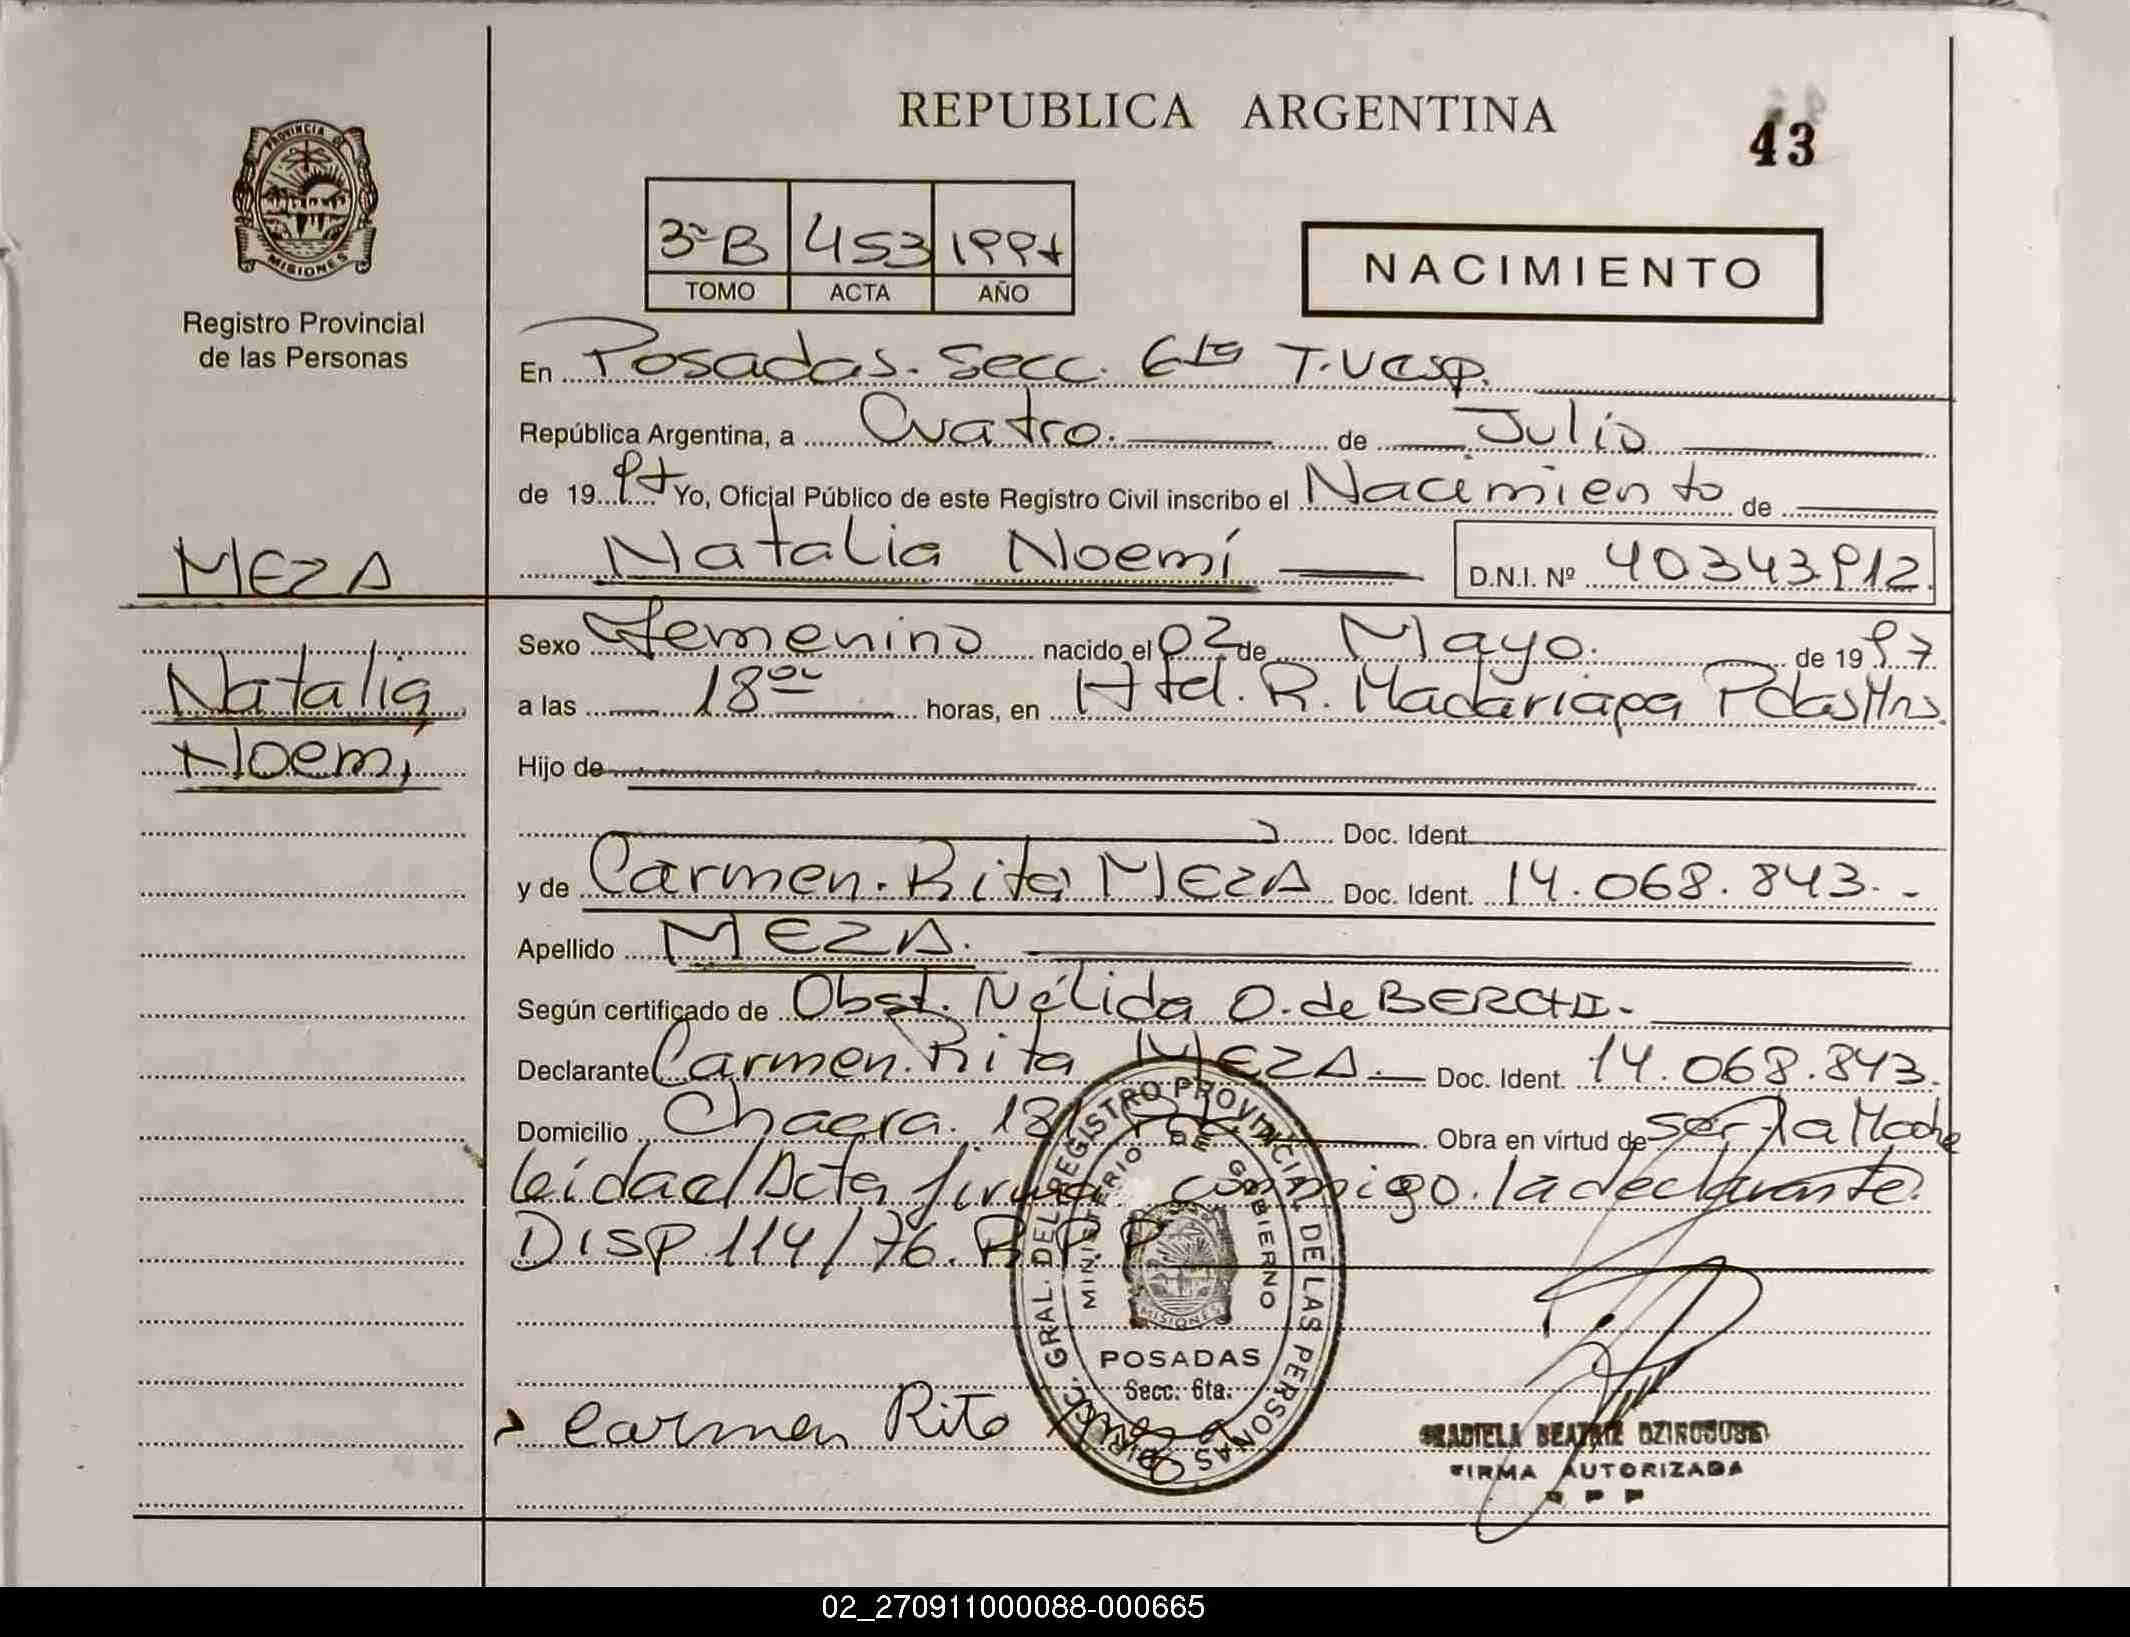 REPUBLICA ARGENTINA
43
PROVINCIA DE
MISIONES
Registro Provincial
de las Personas
3º B 453 1997
TOMO ACTA AÑO
NACIMIENTO
En Posadas. Secc. 6ta T. Vesp.
República Argentina, a Cuatro. de Julio
de 1997 Yo, Oficial Público de este Registro Civil inscribo el Nacimiento de
Natalia Noemí D.N.I. Nº 40343912
MEZA
Natalia
Noemí
Sexo Femenino nacido el 02 de Mayo. de 1997
a las 18 horas, en Htal. R. Madariaga Pdas Mns.
Hijo de
Doc. Ident.
y de Carmen. Rita MEZA Doc. Ident. 14.068.843. -
Apellido MEZA.
Según certificado de Obst. Nélida O. de BERCHI.-
Declarante Carmen. Rita MEZA. Doc. Ident. 14.068.843.
Domicilio Chacra. 181 Obra en virtud de ser la Madre
leida el Acta firma conmigo. la declarante.
DISP. 114/76. R.P.P
DIREC. GRAL. DEL REGISTRO PROVINCIAL DE LAS PERSONAS
MINISTERIO DE GOBIERNO
MISIONES
POSADAS
Secc. 6ta.
Carmen Rita Meza
GRACIELA BEATRIZ
FIRMA AUTORIZADA
R P P
02_270911000088-000665